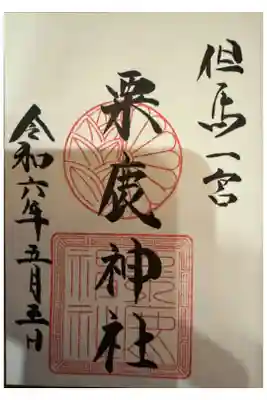 但馬一宮
粟鹿神社
令和六年五月五日